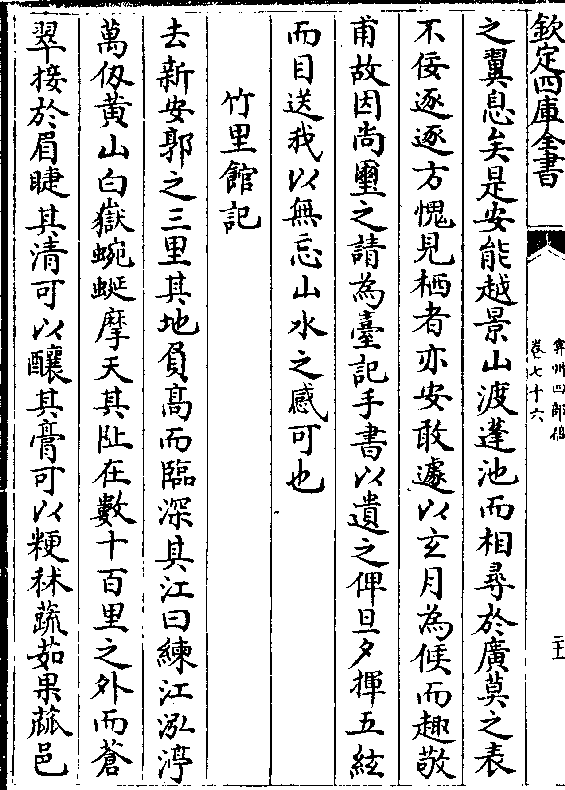 欽定四庫全書
弇州四部稿
卷七十六
之翼息矣是安能越景山渡蓬池而相尋於廣莫之表
不佞逐逐方愧見栖者亦安敢遽以玄月為候而趣敬
甫故因尚璽之請為臺記手書以遺之俾旦夕揮五絃
而目送我以無忘山水之感可也
竹里館記
去新安郭之三里其地負高而臨深其江曰練江泓渟
萬仭黄山白嶽蜿蜒摩天其阯在數十百里之外而蒼
翠接於眉睫其清可以釀其膏可以粳秫蔬茹果蓏邑